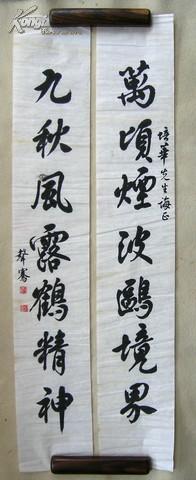 萬頃煙波鷗境界
培華先生誨正
九秋風露鶴精神
聲騫